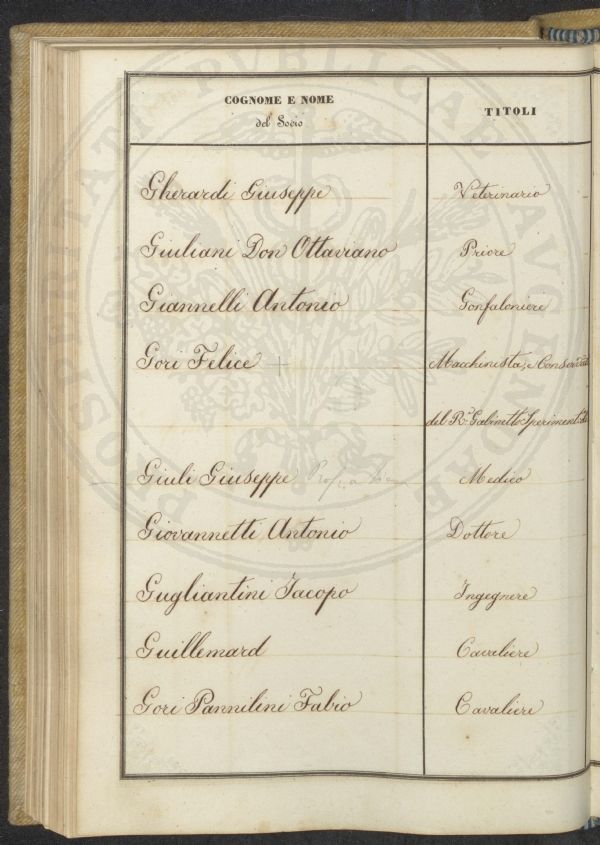 COGNOME E NOME
del Socio
TITOLI
Gherardi Giuseppe Veterinario
Giuliani Don Ottaviano Priore
Giannelli Antonio Gonfaloniere
Gori Felice Macchinista, e Conservat
del R. Gabinetto Speriment
Giuli Giuseppe Medico
Giovannetti Antonio Dottore
Gugliantini Jacopo Ingegnere
Guillemard Cavaliere
Gori Pannilini Fabio Cavaliere
PROSPERITATI PUBLICAE AUGENDAE